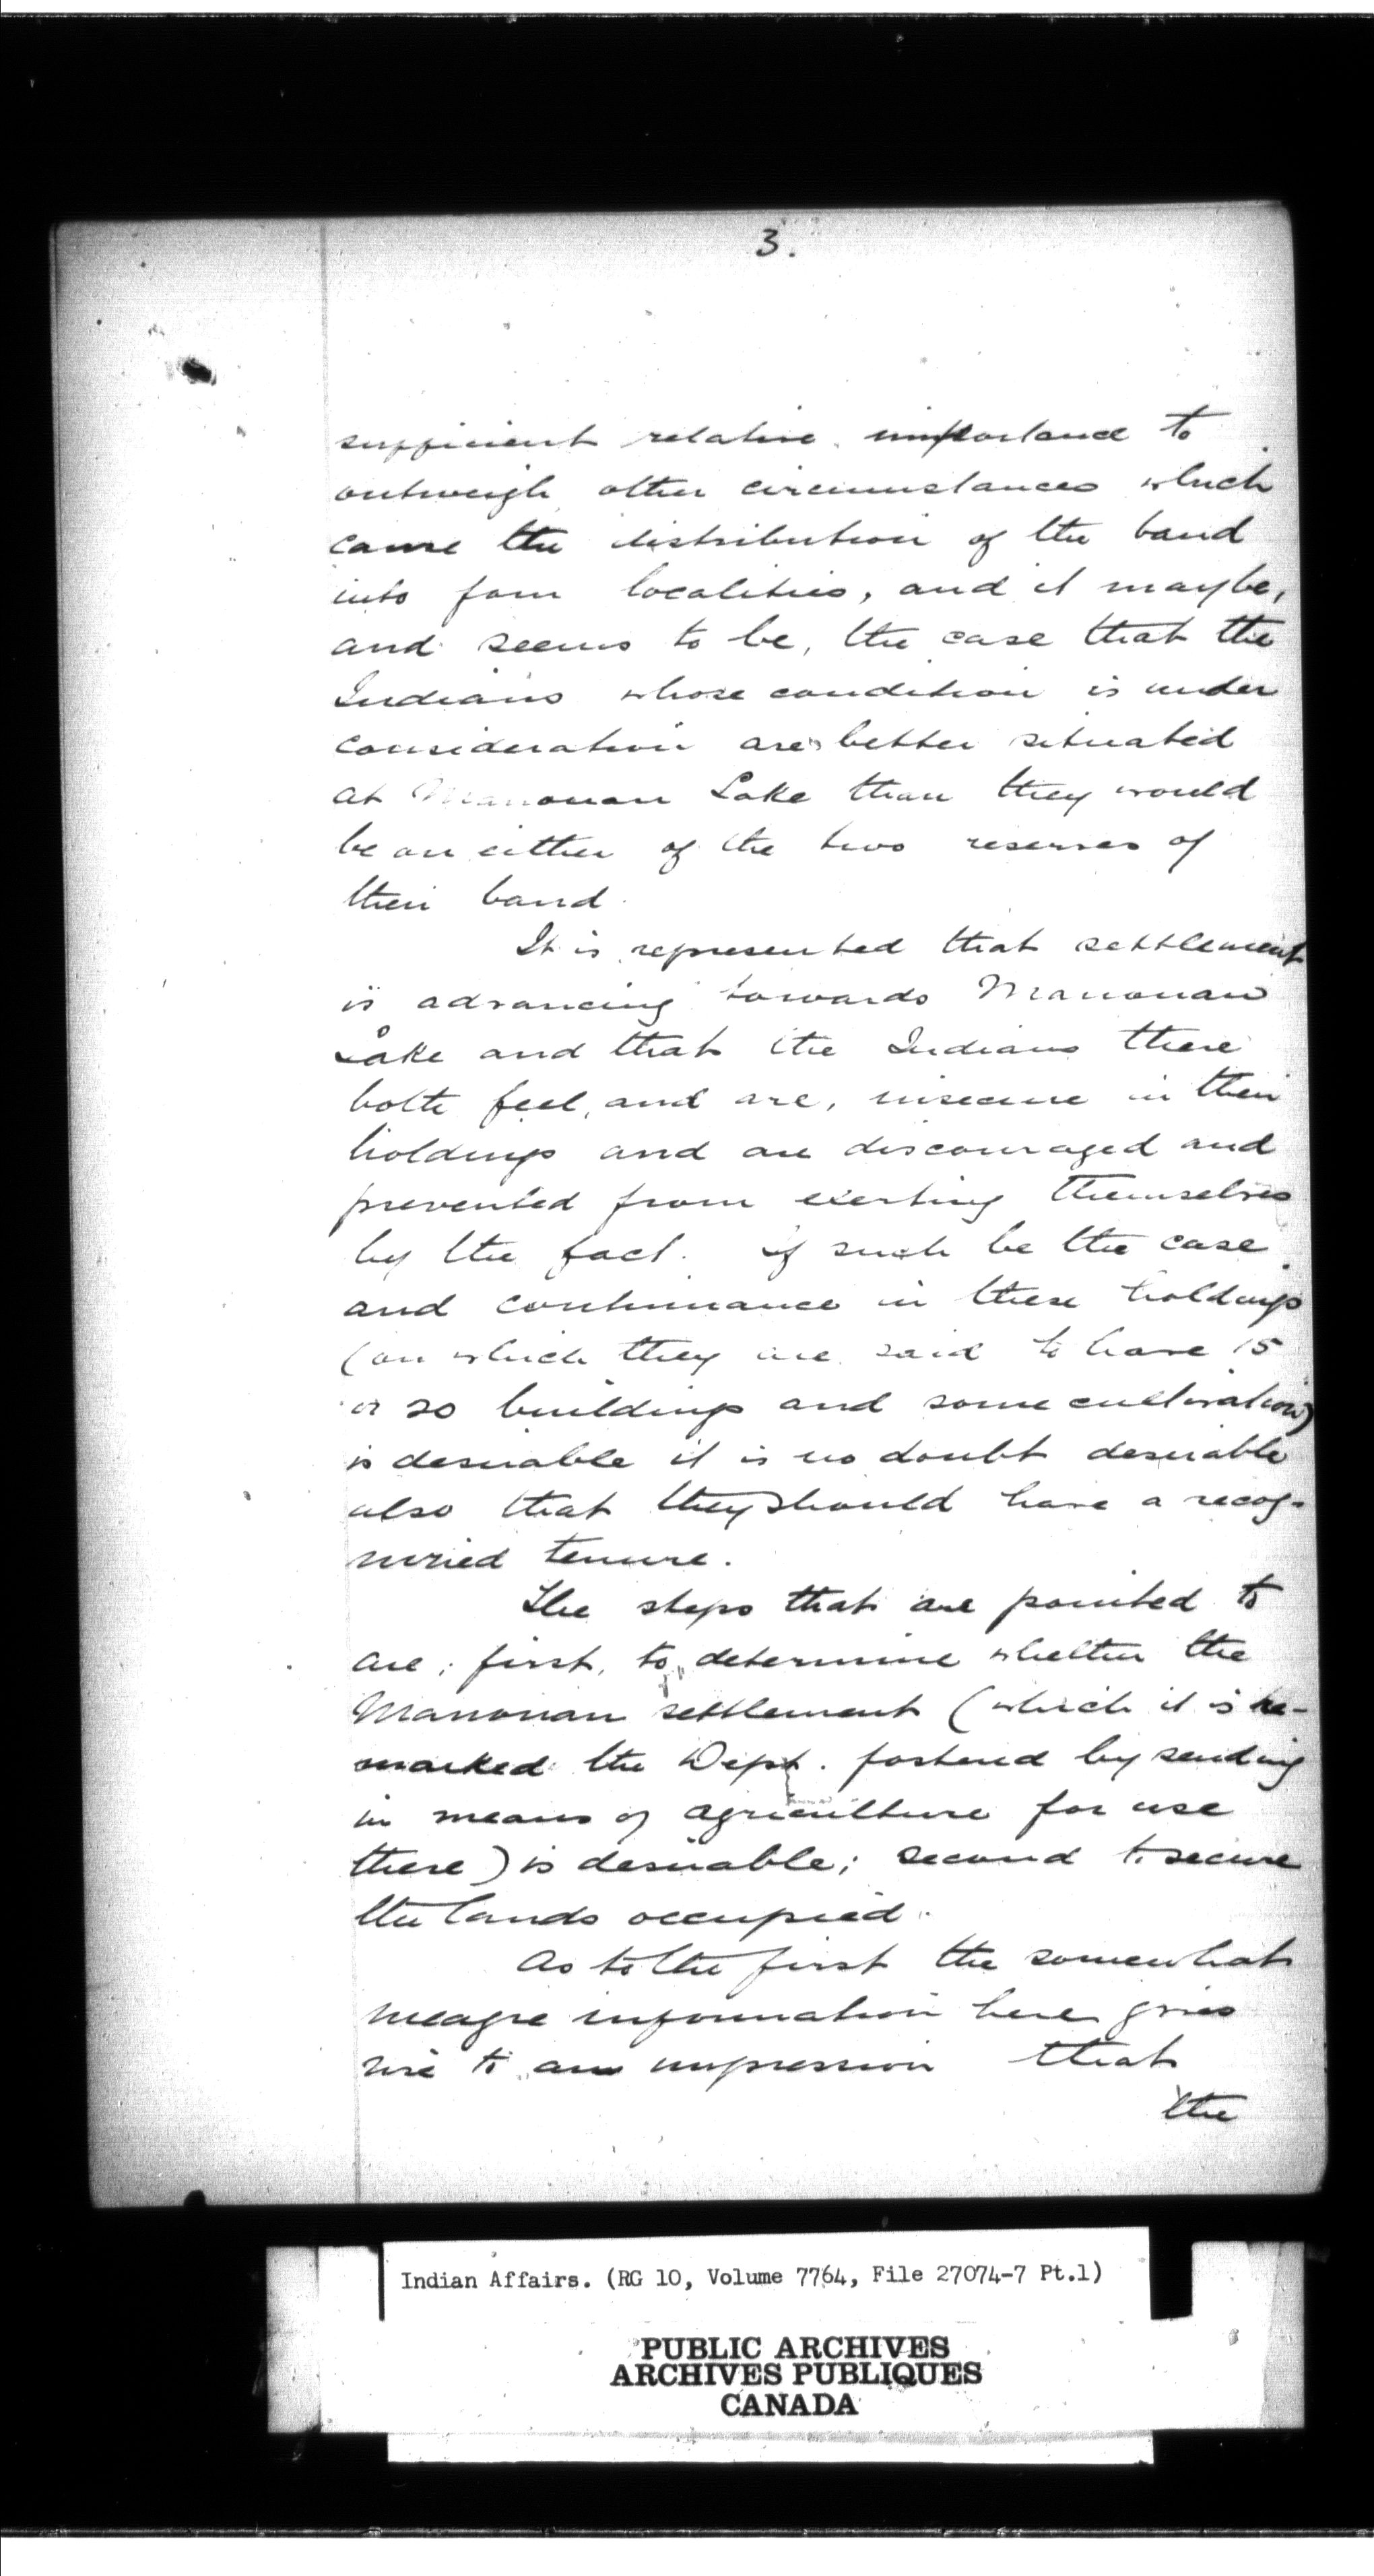 3.
sufficient relative importance to
outweigh other circumstances which
cause the distribution of the band
into four localities, and it may be,
and seems to be, the case that the
Indians whose condition is under
consideration are better situated
at Manouan Lake than they would
be on either of the two reserves of
their band.
It is represented that settlement
is advancing towards Manouan
Lake and that the Indians there
both feel, and are, insecure in their
holdings and are discouraged and
prevented from exerting themselves
by the fact. If such be the case
and continuance in these holdings
(on which they are said to have 15
or so buildings and some cultivation)
is desirable it is no doubt desirable
also that they should have a recog-
nized tenure.
The steps that are pointed to
are; first, to determine whether the
Manouan settlement (which it is re-
marked the Dept. fostered by sending
in means of agriculture for use
there) is desirable; second to secure
the lands occupied.
As to the first the somewhat
meagre information here gives
rise to an impression that
the
Indian Affairs. (RG 10, Volume 7764, File 27074-7 Pt.1)
PUBLIC ARCHIVES
ARCHIVES PUBLIQUES
CANADA